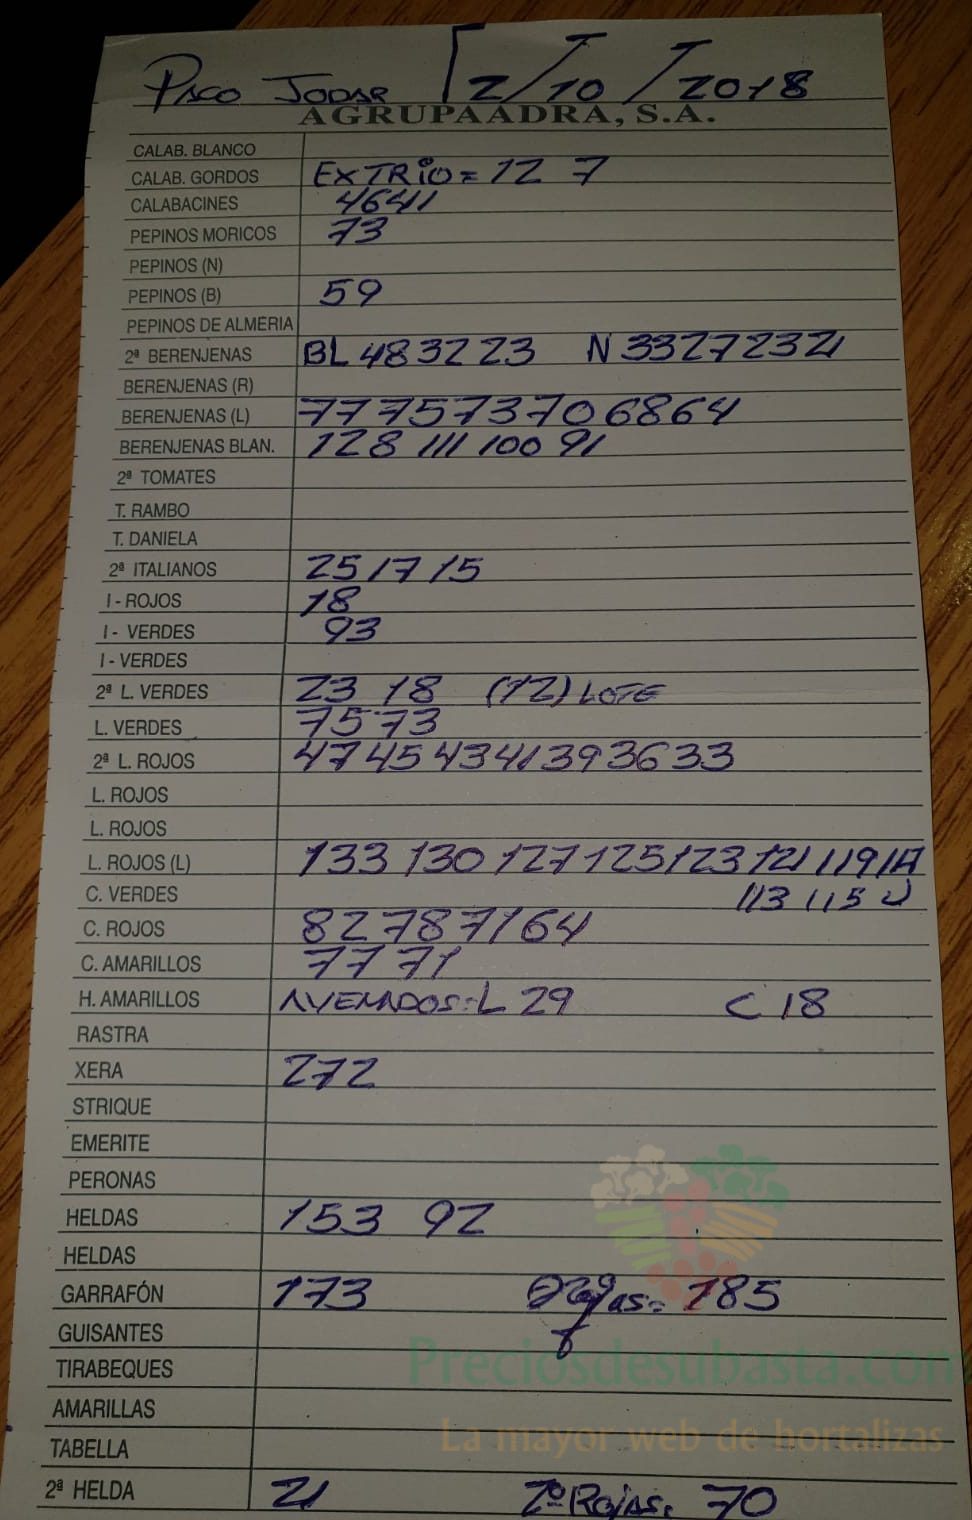 PACO JODAR 2/10/2018
AGRUPAADRA, S.A.
CALAB. BLANCO
CALAB. GORDOS EXTRIO = 12 7
CALABACINES 46 41
PEPINOS MORICOS 73
PEPINOS (N)
PEPINOS (B) 59
PEPINOS DE ALMERIA
2ª BERENJENAS BL 48 32 23 N 33 27 23 21
BERENJENAS (R)
BERENJENAS (L) 77 75 73 70 68 64
BERENJENAS BLAN. 128 111 100 91
2ª TOMATES
T. RAMBO
T. DANIELA
2ª ITALIANOS 25 17 15
I - ROJOS 18
I - VERDES 93
I - VERDES
2ª L. VERDES 23 18 (12) LOTE
L. VERDES 75 73
2ª L. ROJOS 47 45 43 41 39 36 33
L. ROJOS
L. ROJOS
L. ROJOS (L) 133 130 127 125 123 121 119
C. VERDES 113 115
C. ROJOS 82 78 71 64
C. AMARILLOS 77 71
H. AMARILLOS L 29 C 18
RASTRA
XERA 272
STRIQUE
EMERITE
PERONAS
HELDAS 153 92
HELDAS
GARRAFÓN 173 185
GUISANTES
TIRABEQUES
Preciosdesubasta.com
AMARILLAS
La mayor web de hortalizas
TABELLA
2ª HELDA 21 2º Rojas = 70